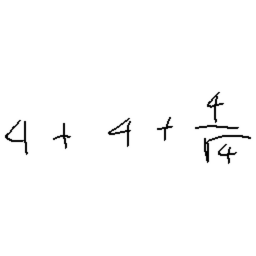 4 + 4 + \frac{4}{\sqrt{4}}